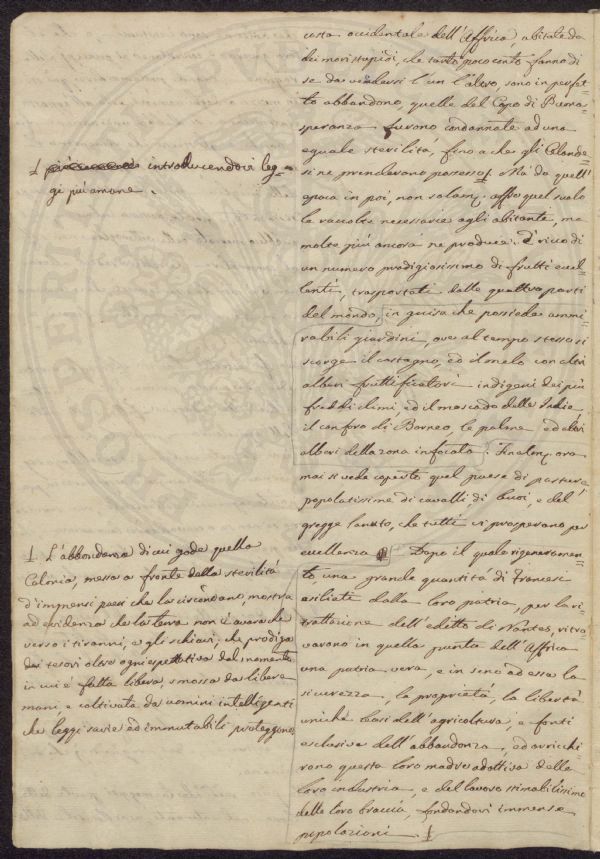 costa occidentale dell'Affrica, abitate da
dei mori stupidi, che tanto poco conto fanno di
se da vendersi l'un l'altro, sono in perfet=
to abbandono, quelle del Capo di Buona
speranza furono condannate ad una
eguale sterilità, fino a che gli Olande=
si ne prendevano possesso Ma da quell'
epoca in poi, non solam. quel suolo
le raccolte necessarie agli abitante, ma
molte più ancora ne produce. È ricco di
un numero prodigiosissimo di frutti eccel=
lenti, trasportati dalle quattro parti
del mondo, in guisa che possiede ammi=
rabili giardini, ove al tempo stesso si
scorge il castagno, ed il melo con altri
alberi fruttificatori indigeni dei più
freddi climi, ed il moscado delle Indie,
il canforo di Borneo, le palme ed altri
alberi della zona infocata. Finalm. ora
mai si vede coperto quel paese di pasture,
popolatissime di cavalli, di buoi, e del
gregge lanuto, che tutti vi prosperano per
eccellenza Dopo il quale rigeneramen=
to, una grande quantità di Francesi
esiliati dalla loro patria, per la ri=
trattazione dell'editto di Nantes, ritro
varono in quella punta dell'Affrica
una patria vera, e in seno ad essa la
sicurezza, la proprietà, la libertà
uniche basi dell'agricoltura, e fonti
esclusive dell'abbondanza, ed arricchi
rono questa loro madre adottiva della
loro industria, e del lavoro stimabilissimo
delle loro braccia, fondandovi immense
popolazioni.
introducendovi leg=
gi più umane.
L'abbondanza di cui gode quella
Colonia, messa a fronte dalla sterilità
d'immensi paesi che la circondano, mostra
ad evidenza che la terra non è avara che
verso i tiranni, e gli schiavi; che prodiga
dei tesori oltre ogni espettativa dal momento
in cui è fatta libera, smossa da libere
mani e coltivata da uomini intelligenti
che leggi savie ed immutabili proteggono